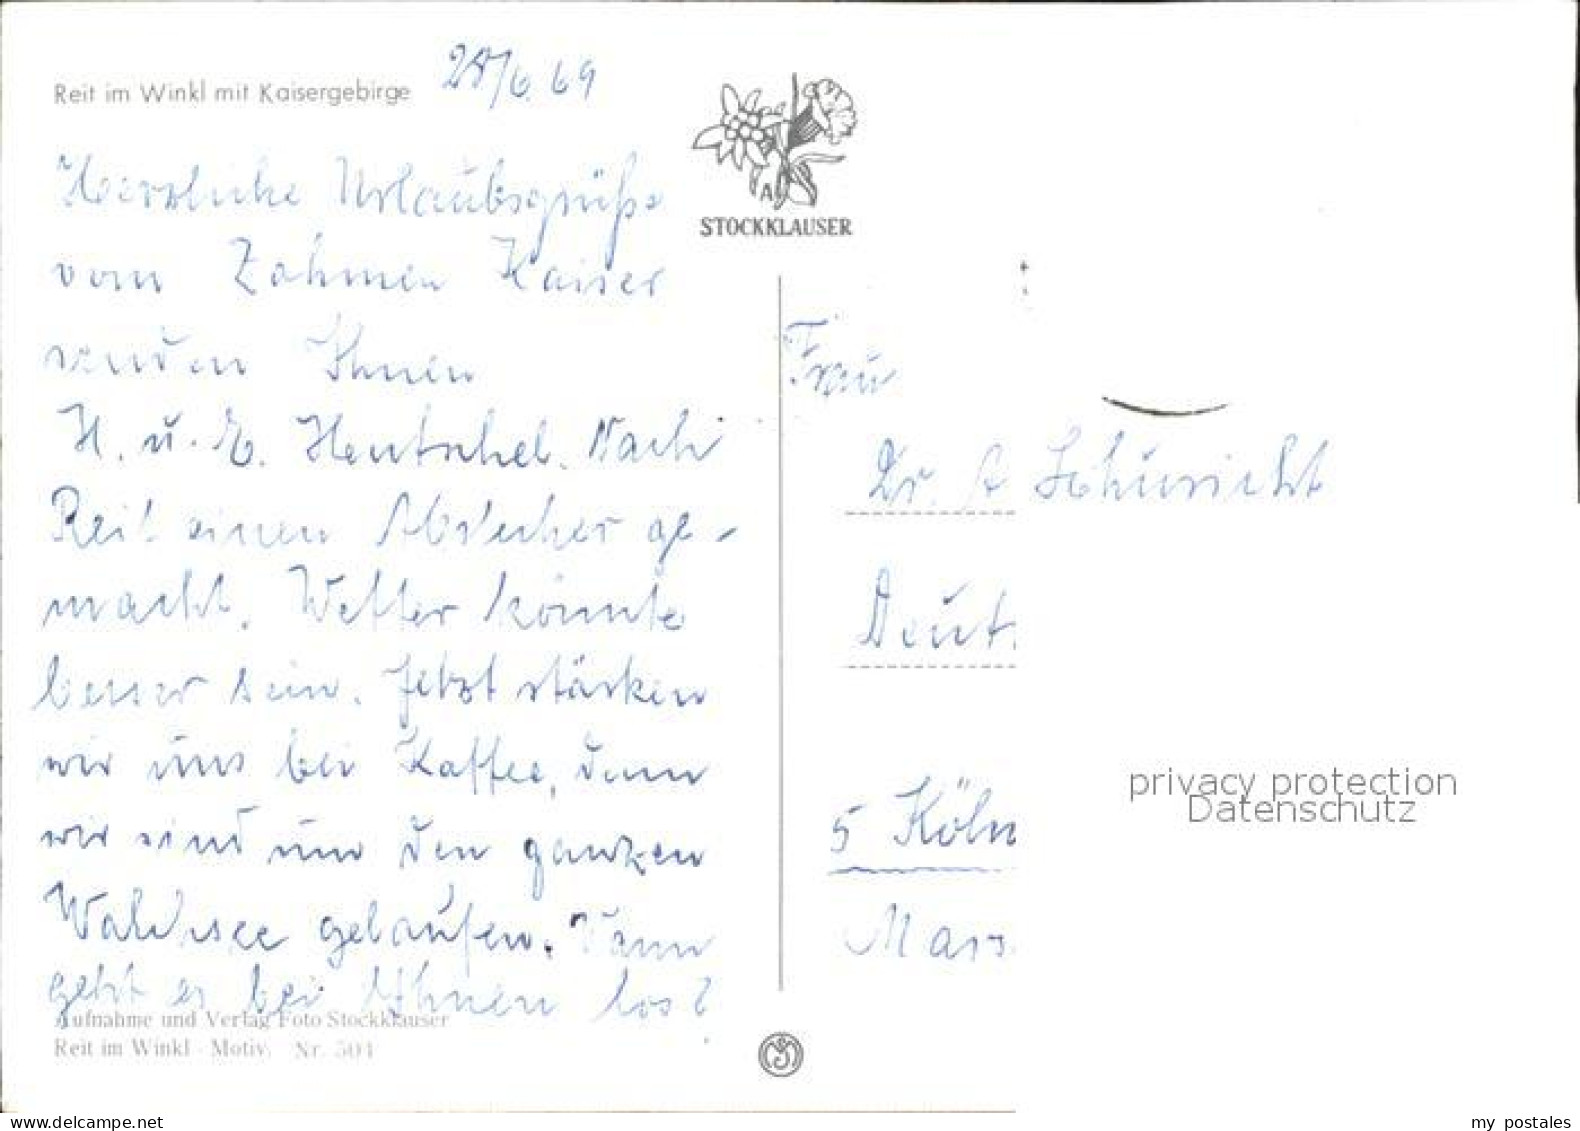 Reit im Winkl mit Kaisergebirge
28/6.69
Herzliche Urlaubsgrüße
vom Zahmen Kaiser
senden Ihnen
H. u. E. Hentschel. Nach
Reit einen Abstecher ge-
macht. Wetter könnte
besser sein. Jetzt stärken
wir uns bei Kaffee, denn
wir sind um den ganzen
Walchsee gelaufen. Wann
geht es bei Ihnen los?
Aufnahme und Verlag Foto Stockklauser
Reit im Winkl - Motiv. Nr. 504
A
STOCKKLAUSER
Frau
Dr. A Schüricht
Deut
5 Köln
Mars
privacy protection
Datenschutz
my postales
www.delcampe.net